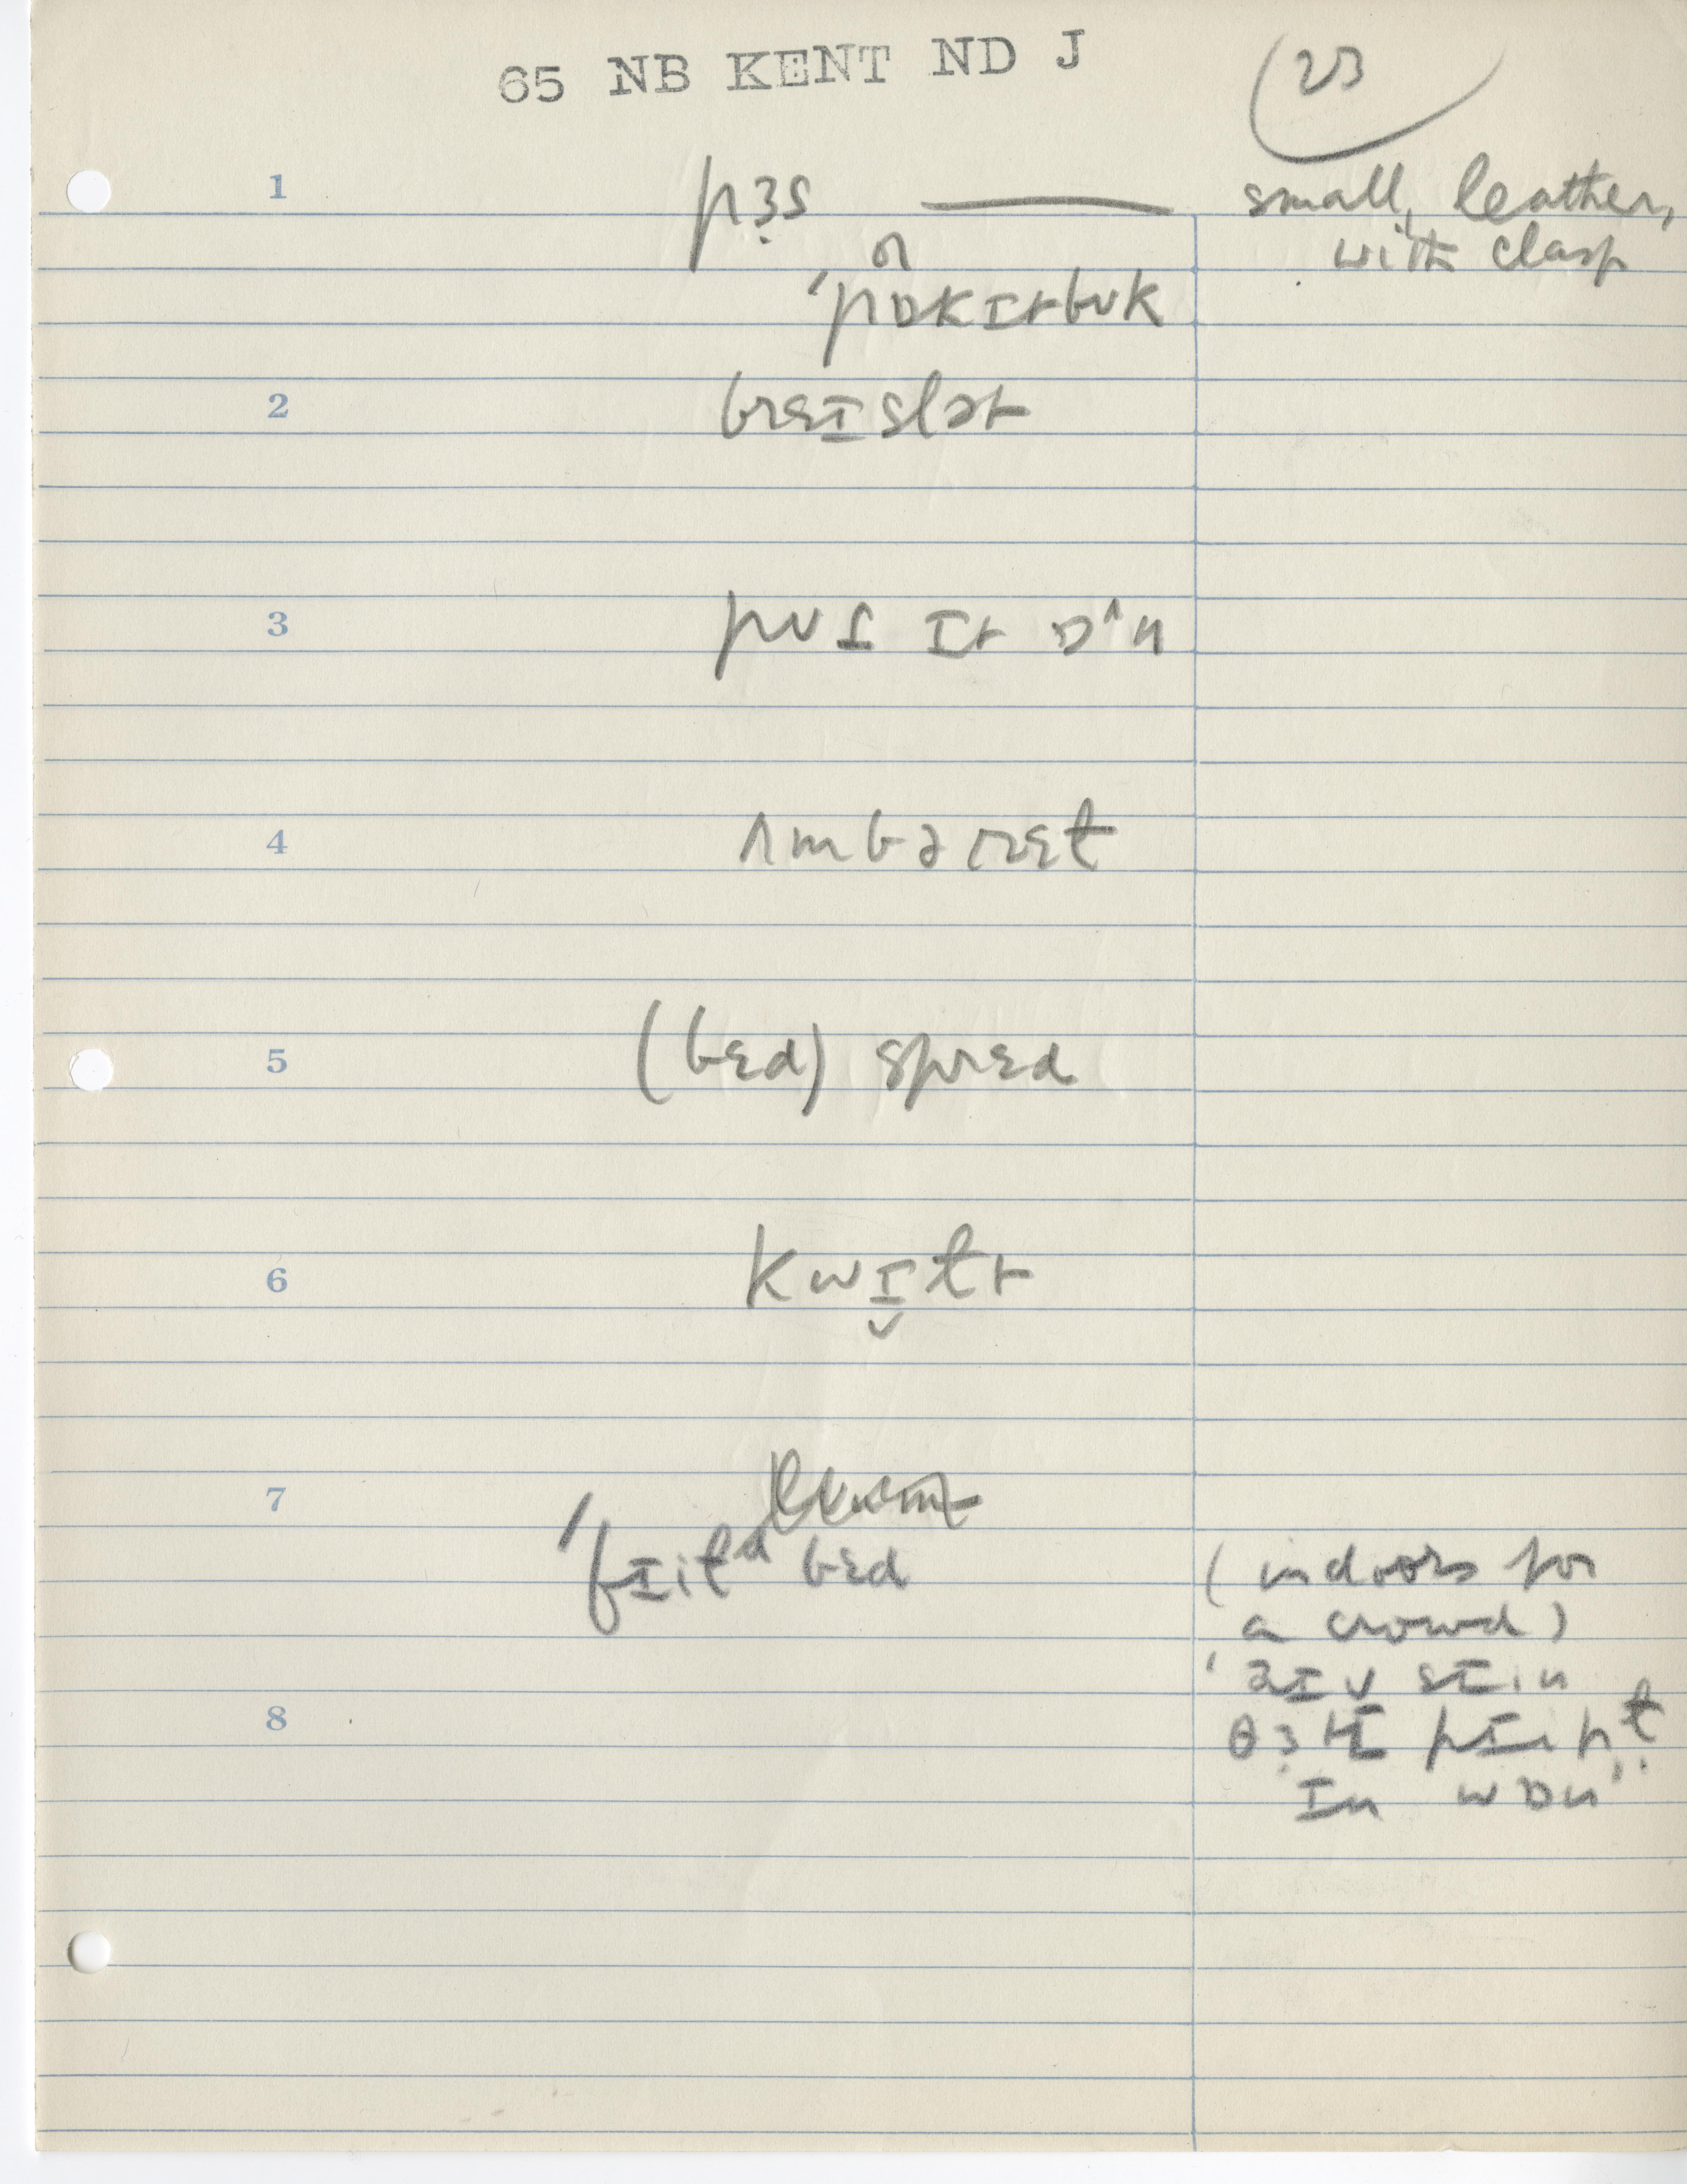 65 NB KENT ND J
(23
1 pɜ̣s —— small, leather,
or with clasp
ˈpɒkɪtbʊk
2 brɛɪslət
3 pʊt ɪt ɒˆn
4 ʌmbərɛt
5 (bɛd) sprɛd
6 kwɪ̬lt
7
ˈfɪilᵈ bɛd (indoors for
a crowd)
8
ɪn wɒn"